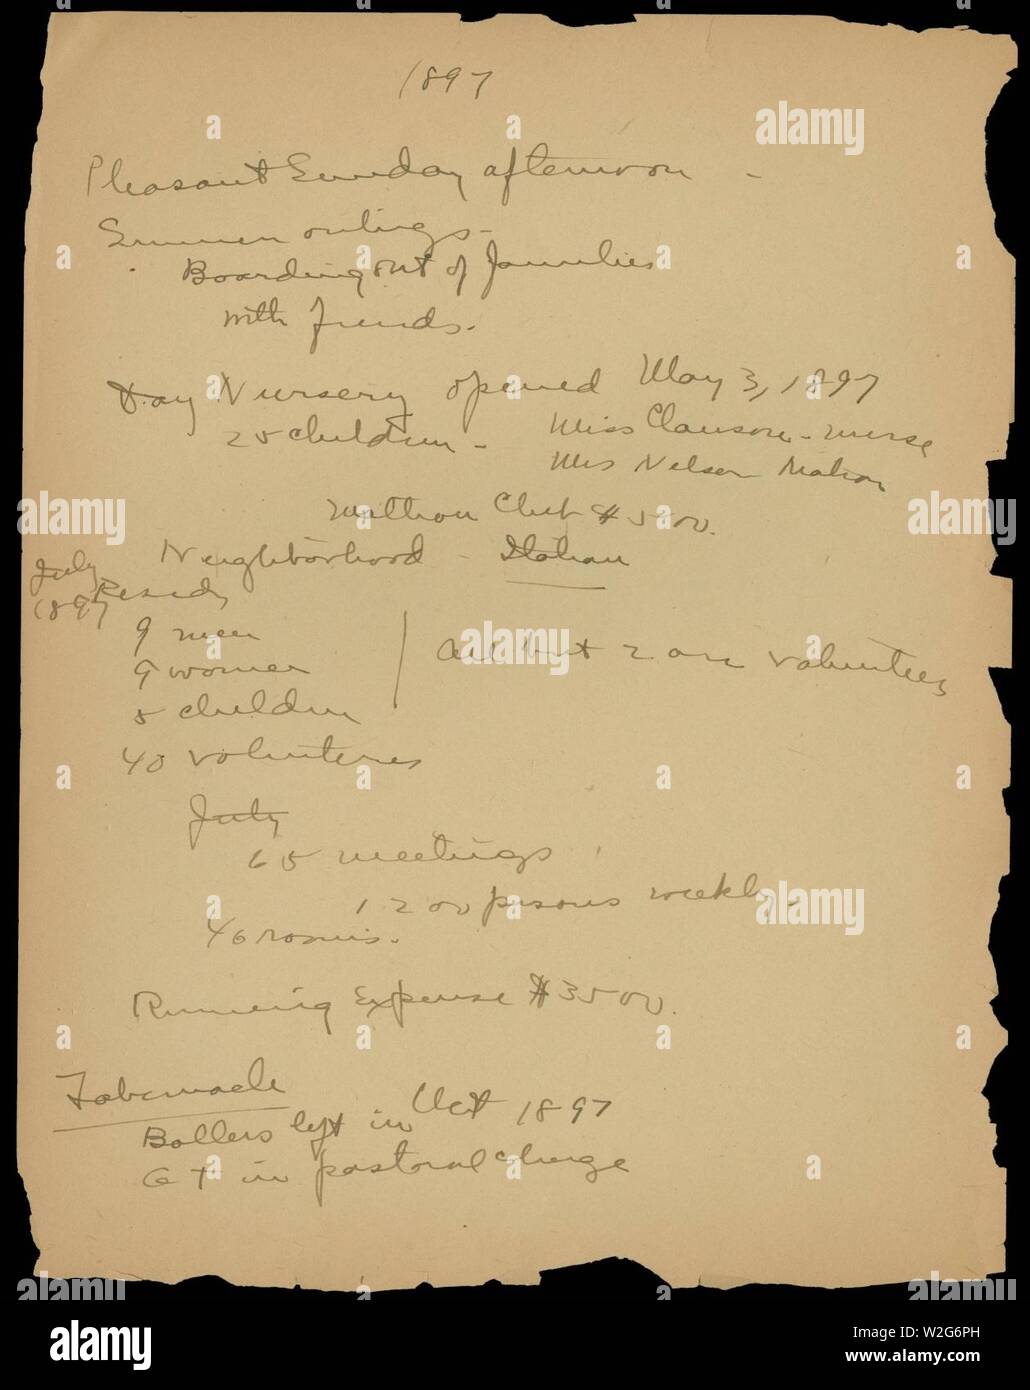 1897
Pleasant Sunday afternoon -
Summer outings -
Boarding out of families
with friends.
Day Nursery opened May 3, 1897
25 children - Miss Clauson - nurse
Mrs Nelson Matron
Club $500.
Neighborhood - Italian
July
1897
9 men
9 women
5 children
All but 2 are volunteers
40 volunteers
July
65 meetings
1200 persons weekly -
40 rooms.
Running Expense $3500.
Tabernacle
Bollers left in Oct 1897
G T in pastoral charge
alamy
alamy
alamy
alamy
alamy
a
a
a
alamy
Image ID: W2G6PH
www.alamy.com